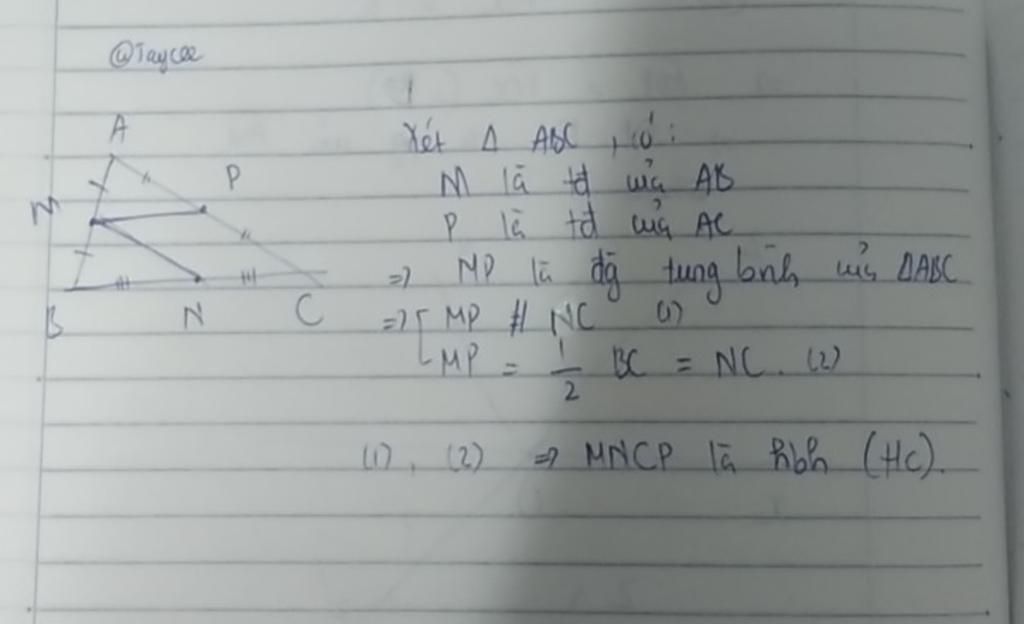 @Taycee
A
M
P
B
N
C
Xét Δ ABC, có:
M là tđ của AB
P là tđ của AC
=> MP là đg tung bình của ΔABC
=> [ MP // NC (1)
MP = 1/2 BC = NC. (2)
(1), (2) => MNCP là hbh (Hc).